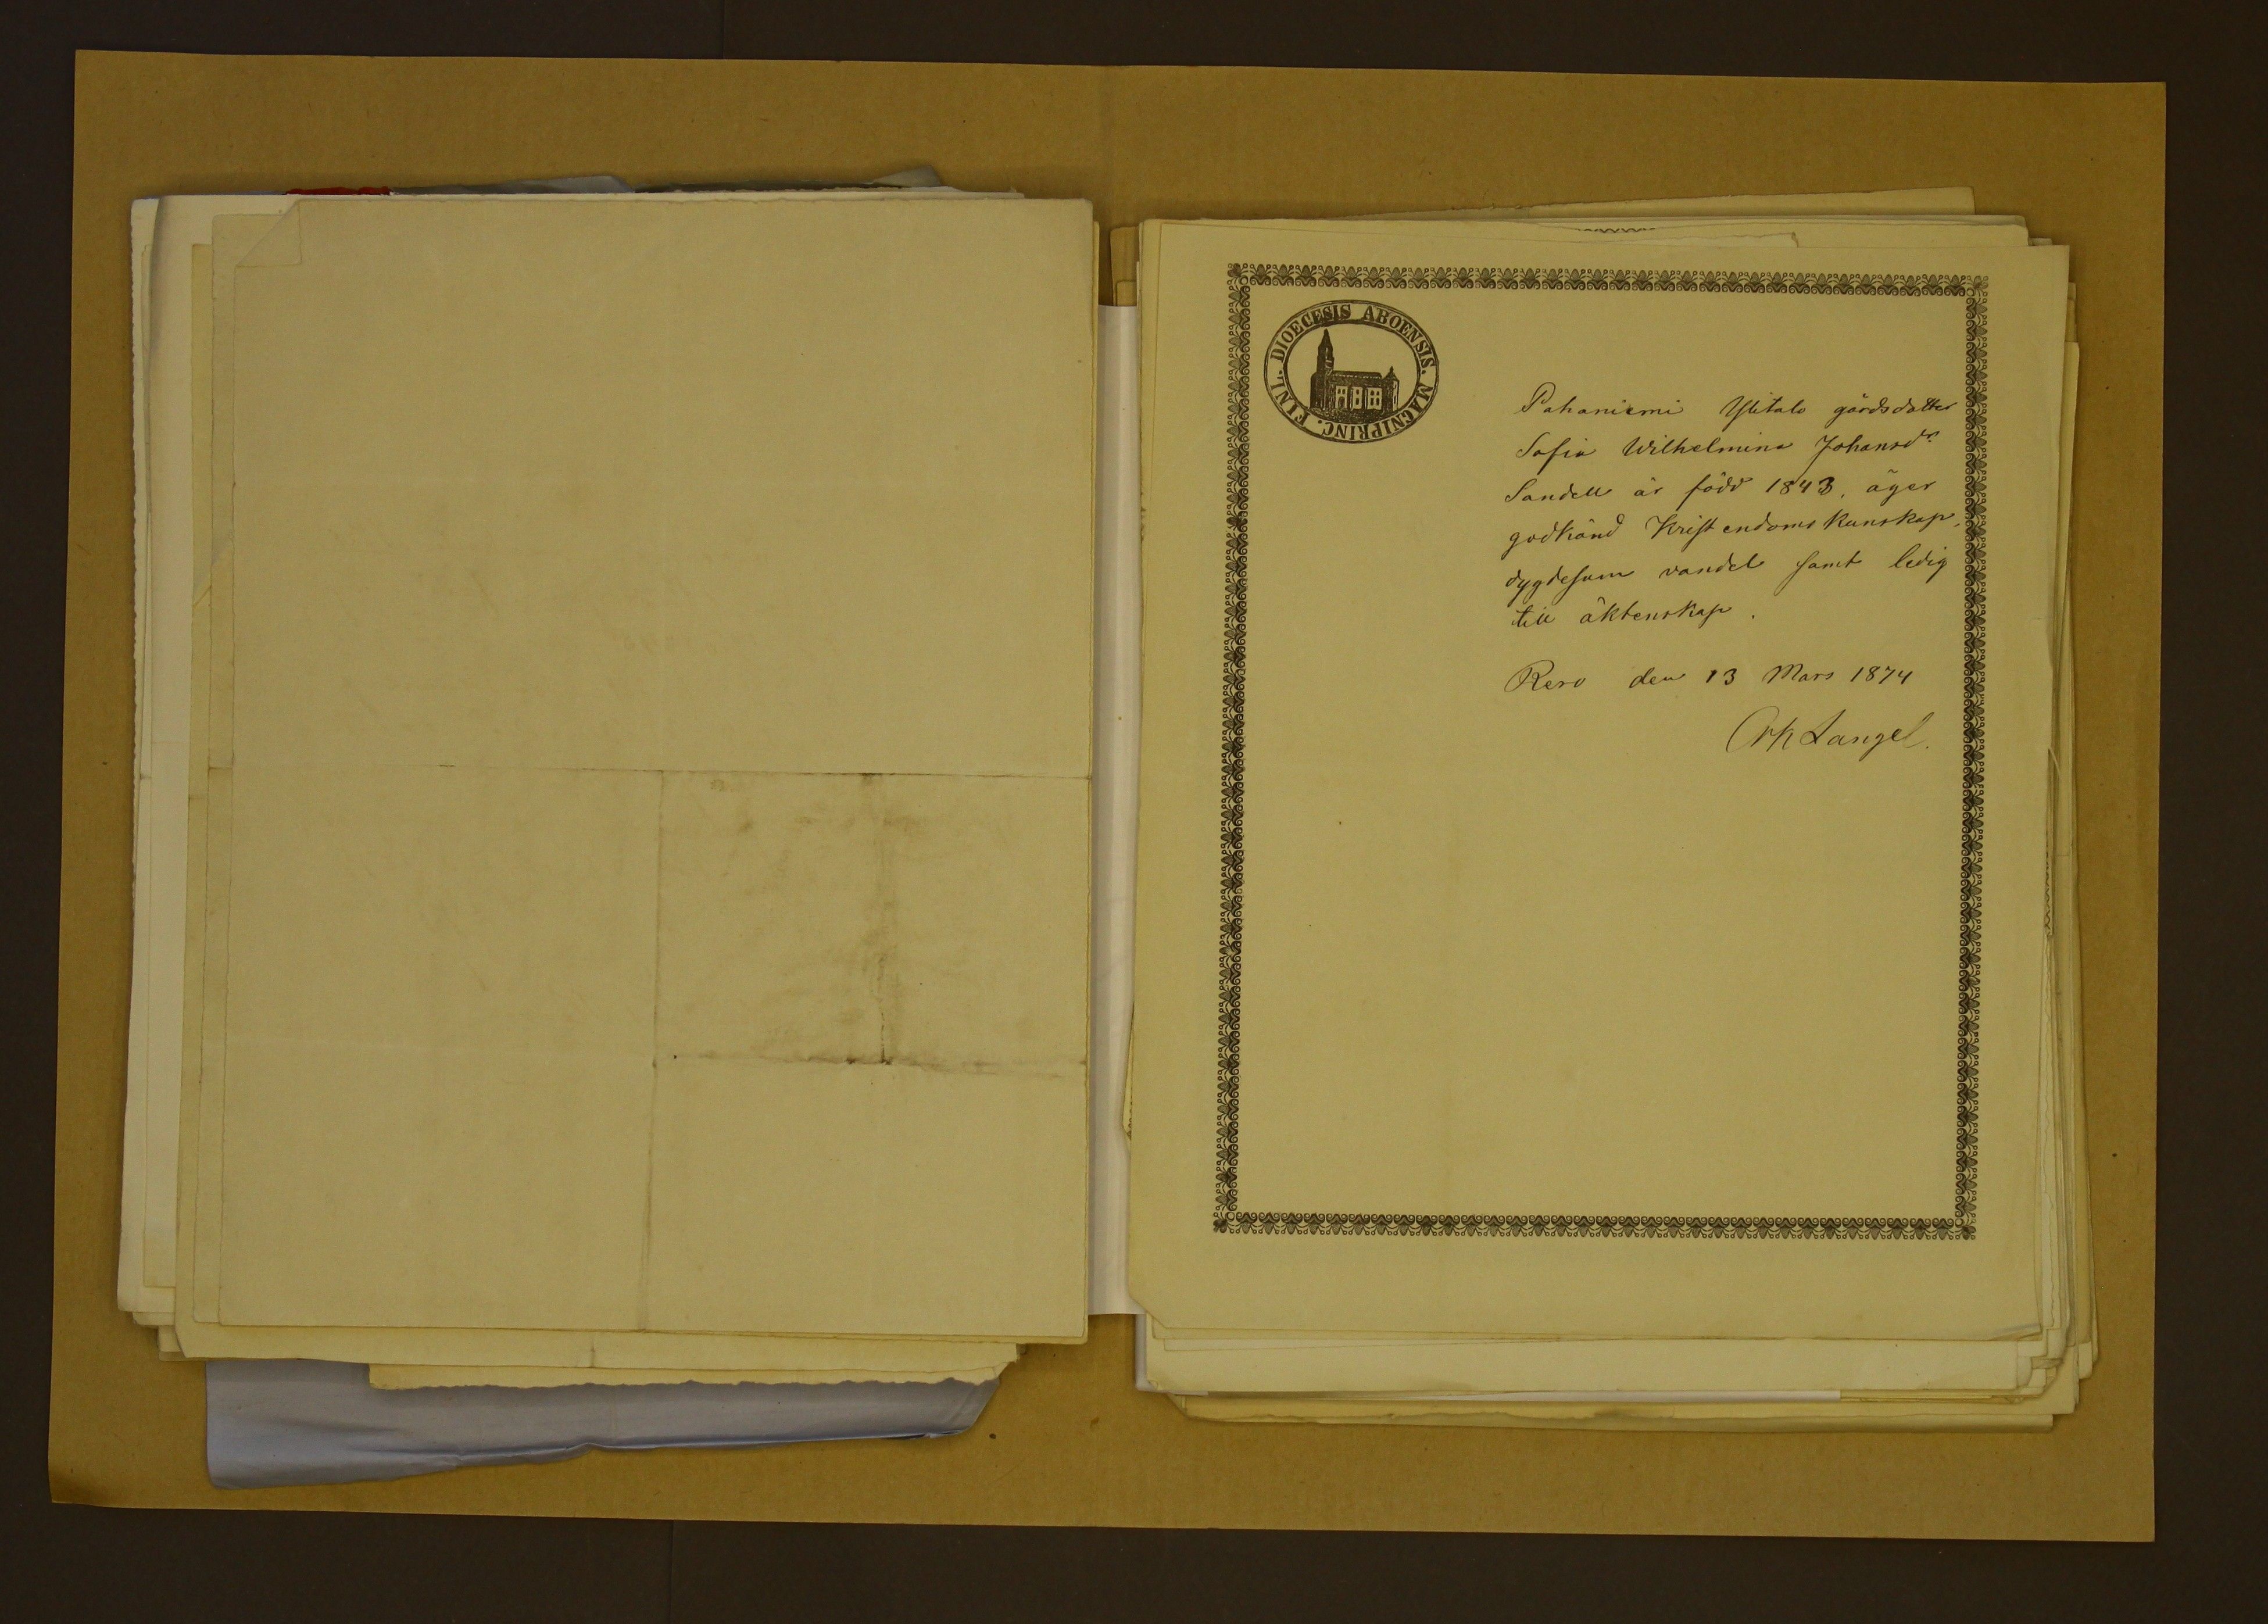 DIOECESIS ABOENSIS. MAGNIPRINC. FINL.
Pahaniemi Ylitalo gårdsdotter
Sofia Wilhelmina Johansdr
Sandell är född 1843, äger
godkänd Kristendoms kunskap,
dygdesam vandel samt ledig
till äktenskap.
Reso den 13 Mars 1874
Langel.